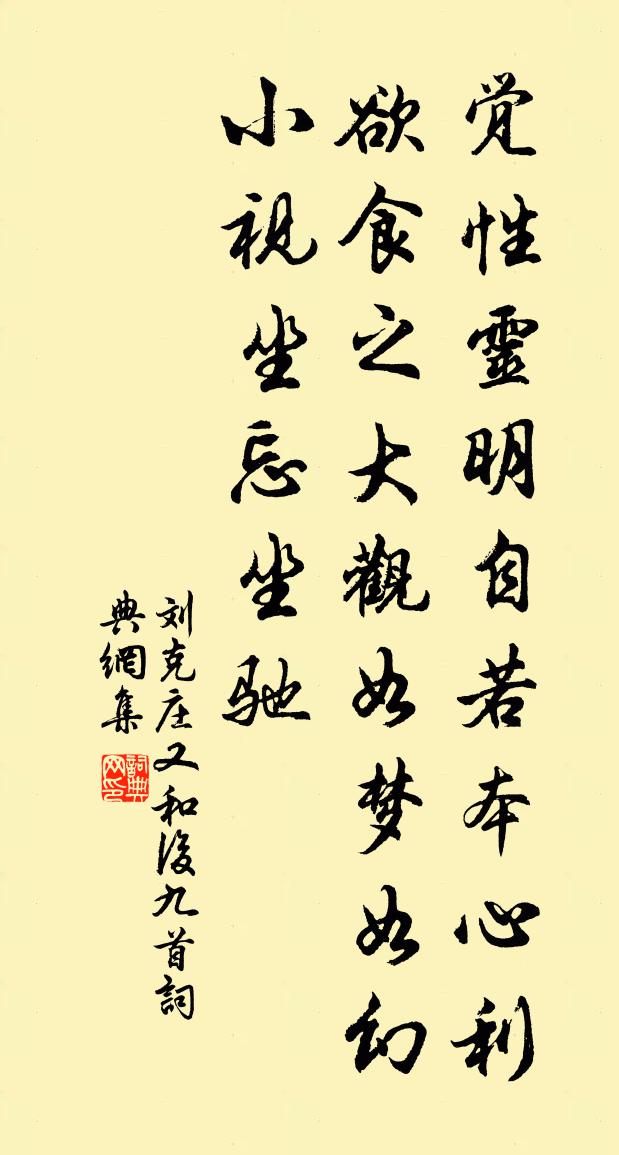 觉性靈明自若本心利
欲食之大觀如梦如幻
小視坐忘坐驰
刘克庄又和後九首詞
典網集
詞典
网印